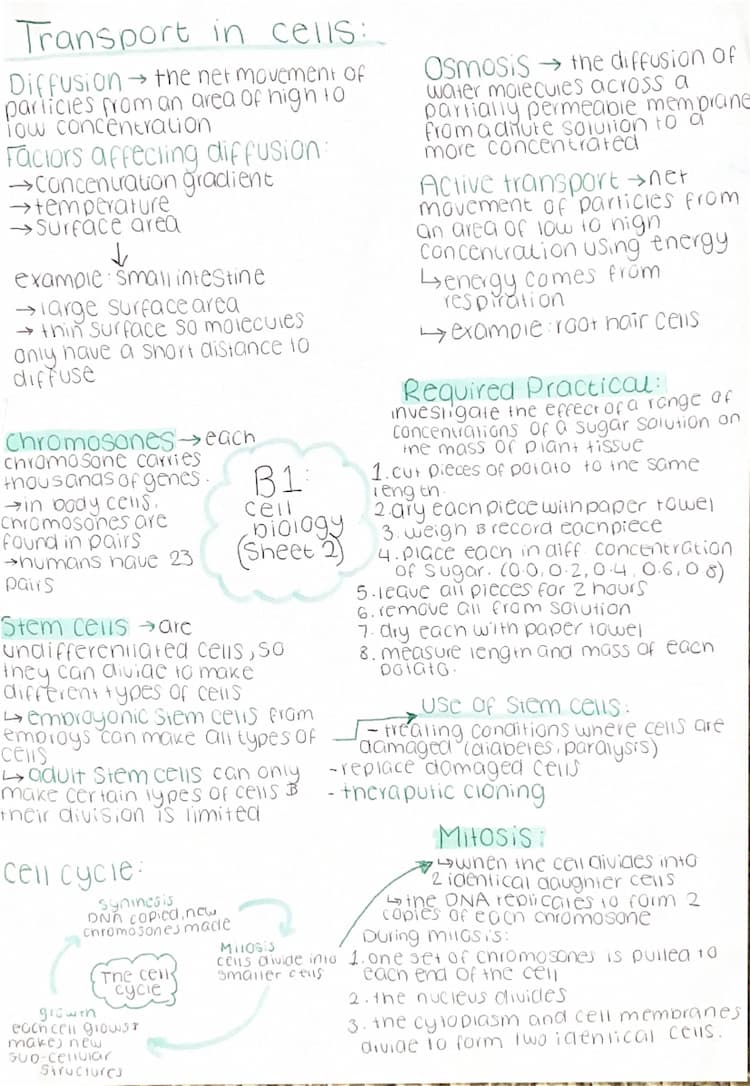 Transport in cells:
Diffusion → the net movement of
particles from an area of high to
low concentration
Factors affecting diffusion:
→ concentration gradient
→ temperature
→ surface area
↓
example: small intestine
→ large surface area
→ thin surface so molecules
only have a short distance to
diffuse
Osmosis → the diffusion of
water molecules across a
partially permeable membrane
from a dilute solution to a
more concentrated
Active transport → net
movement of particles from
an area of low to high
concentration using energy
↳ energy comes from
respiration
↳ example: root hair cells
Chromosones → each
chromosone carries
thousands of genes.
→ in body cells,
chromosones are
found in pairs
→ humans have 23
pairs
B1:
cell
biology
(Sheet 2)
Required Practical:
investigate the effect of a range of
concentrations of a sugar solution on
the mass of plant tissue
1. cut pieces of potato to the same
length.
2. dry each piece with paper towel
3. weigh & record each piece
4. place each in diff concentration
of sugar. (0.0, 0.2, 0.4, 0.6, 0.8)
5. leave all pieces for 2 hours
6. remove all from solution
7. dry each with paper towel
8. measure length and mass of each
potato.
Stem cells → are
undifferentiated cells, so
they can divide to make
different types of cells
↳ embroyonic stem cells from
embroys can make all types of
cells
↳ adult stem cells can only
make certain types of cells &
their division is limited
Use of stem cells:
- treating conditions where cells are
damaged (diabetes, paralysis)
- replace damaged cells
- theraputic cloning
Cell cycle:
synthesis
DNA copied, new
chromosones made
Mitosis
cells divide into
smaller cells
The cell
cycle
growth
each cell grows +
makes new
sub-cellular
structures
Mitosis:
↳ when the cell divides into
2 identical daughter cells
↳ the DNA replicates to form 2
copies of each chromosone
During mitosis:
1. one set of chromosones is pulled to
each end of the cell
2. the nucleus divides
3. the cytoplasm and cell membranes
divide to form two identical cells.